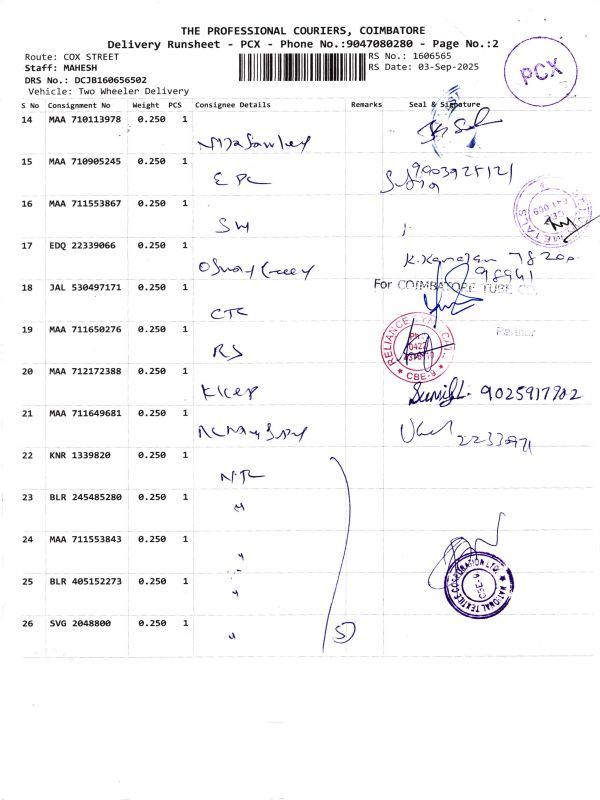 THE PROFESSIONAL COURIERS, COIMBATORE
Delivery Runsheet - PCX - Phone No.:9047080280 - Page No.:2
Route: COX STREET
RS No.: 1606565
Staff: MAHESH
RS Date: 03-Sep-2025
DRS No.: DCJB160656502
Vehicle: Two Wheeler Delivery
PCX
S No Consignment No Weight PCS Consignee Details Remarks Seal & Signature
14 MAA 710113978 0.250 1
15 MAA 710905245 0.250 1
EPC
16 MAA 711553867 0.250 1
SW
17 EDQ 22339066 0.250 1
18 JAL 530497171 0.250 1 For COIMBATORE TUBE CO.
CTC
Partner
19 MAA 711650276 0.250 1
RS
RELIANCE
CBE-9
20 MAA 712172388 0.250 1
9025917702
21 MAA 711649681 0.250 1
22 KNR 1339820 0.250 1
NTC
23 BLR 245485280 0.250 1
"
24 MAA 711553843 0.250 1
"
25 BLR 405152273 0.250 1
"
NATIONAL TEXTILE CORPORATION LTD.
CBE-9
26 SVG 2048800 0.250 1
" 5